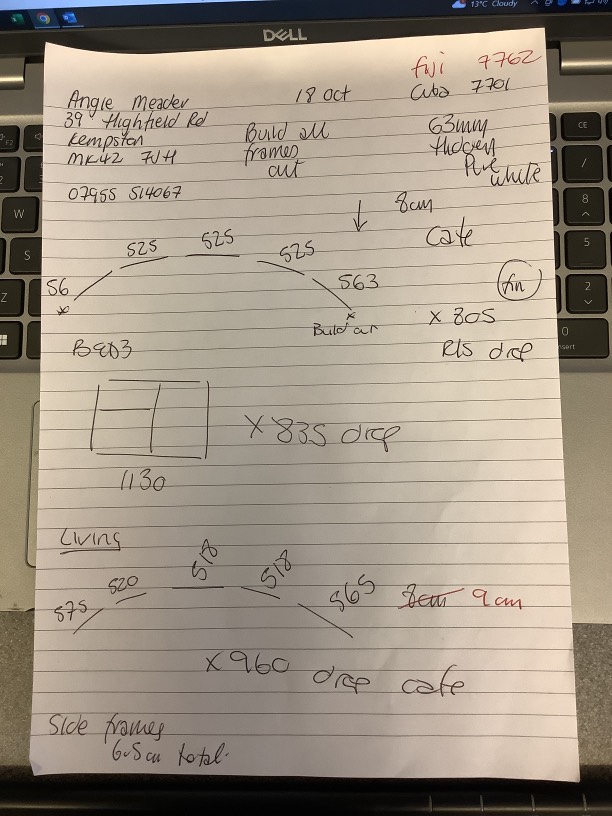 13°C Cloudy
DELL
Fuji 7762
Cuba 7701
Angie Meader
18 Oct
39 Highfield Rd
Kempston
MK42 7JH
07955 514067
Build all
frames
out
63mm
Hidden
Pure
white
8cm
Cafe
56
525
525
525
563
fin
Build out
x 805
RIS drop
Bed3
x 835 drop
1130
Living
575
520
518
518
565
8cm 9cm
x 960 drop cafe
Side frames
6.5cm total.